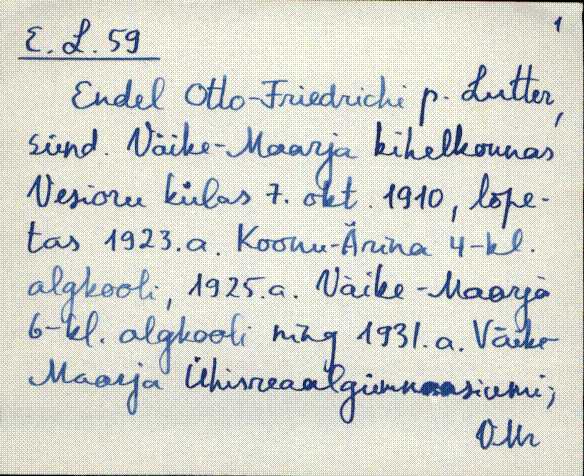 1
E. L. 59
Endel Otto-Friedrichi p. Lutter,
sünd. Väike-Maarja kihelkonnas
Vesioru külas 7. okt. 1910, lõpe-
tas 1923.a. Koonu-Ärina 4-kl.
algkooli, 1925.a. Väike-Maarja
6-kl. algkooli ning 1931.a. Väike-
Maarja Ühisreaalgümnaasiumi;